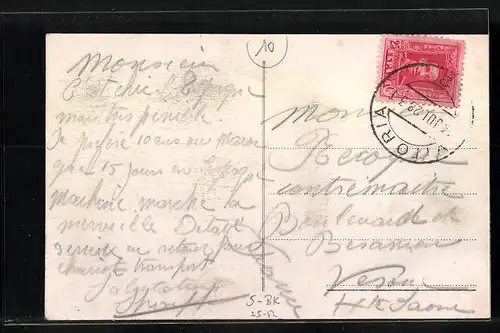 Monsieur
C'est chic l'Espagne
mais très pénible
Je préfère 10 ans au Maroc
que 15 jours en Espagne
Machine marche à
merveille Détail
Service au retour pour
transport
Salutations
10
ESPAÑA
VITORIA
Mon
contremaître
Boulevard de
Besançon
Vesoul
Hte Saone
France
S-BK
25-52